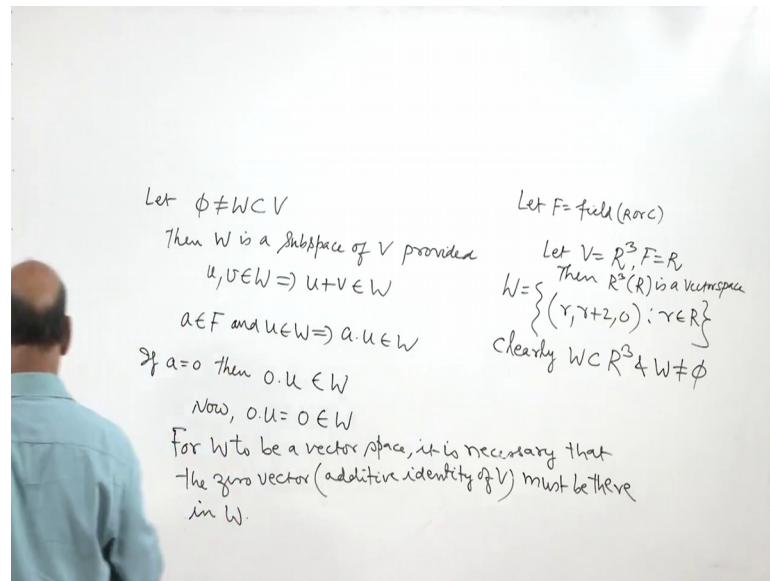 Let ϕ ≠ W ⊂ V
Then W is a Subspace of V provided
u, v ∈ W ⇒ u+v ∈ W
a ∈ F and u ∈ W ⇒ a.u ∈ W
If a=0 then 0.u ∈ W
Now, 0.u = 0 ∈ W
For W to be a vector space, it is necessary that
the zero vector (additive identity of V) must be there
in W.
Let F = field (R or C)
Let V = R³, F = R
Then R³(R) is a vector space
W = {(r, r+2, 0) : r ∈ R}
Clearly W ⊂ R³ & W ≠ ϕ